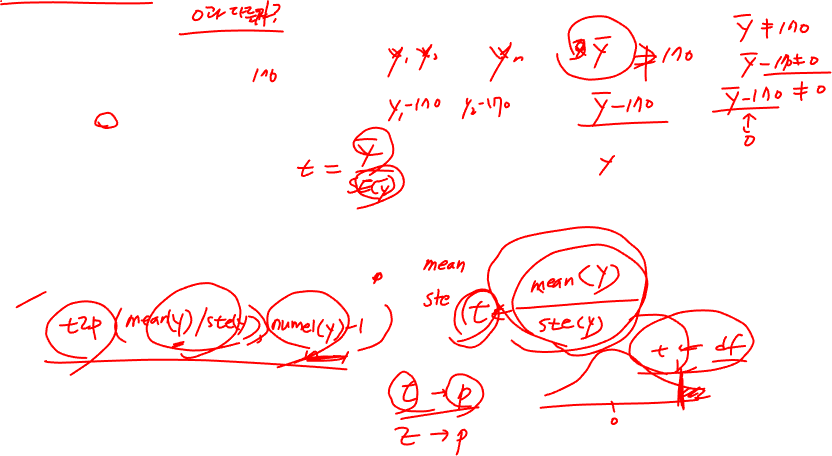 0과 다른가?
170
y₁ y₂ yₙ ȳ ≠ 170
y₁-170 y₂-170 ȳ-170
ȳ ≠ 170
ȳ-170≠0
ȳ-170 ≠ 0
↑
0
y
t = ȳ / SE(y)
mean
ste
t = mean(y) / ste(y)
t2p(mean(y)/ste(y), numel(y)-1)
t ← df
0
t → p
z → p